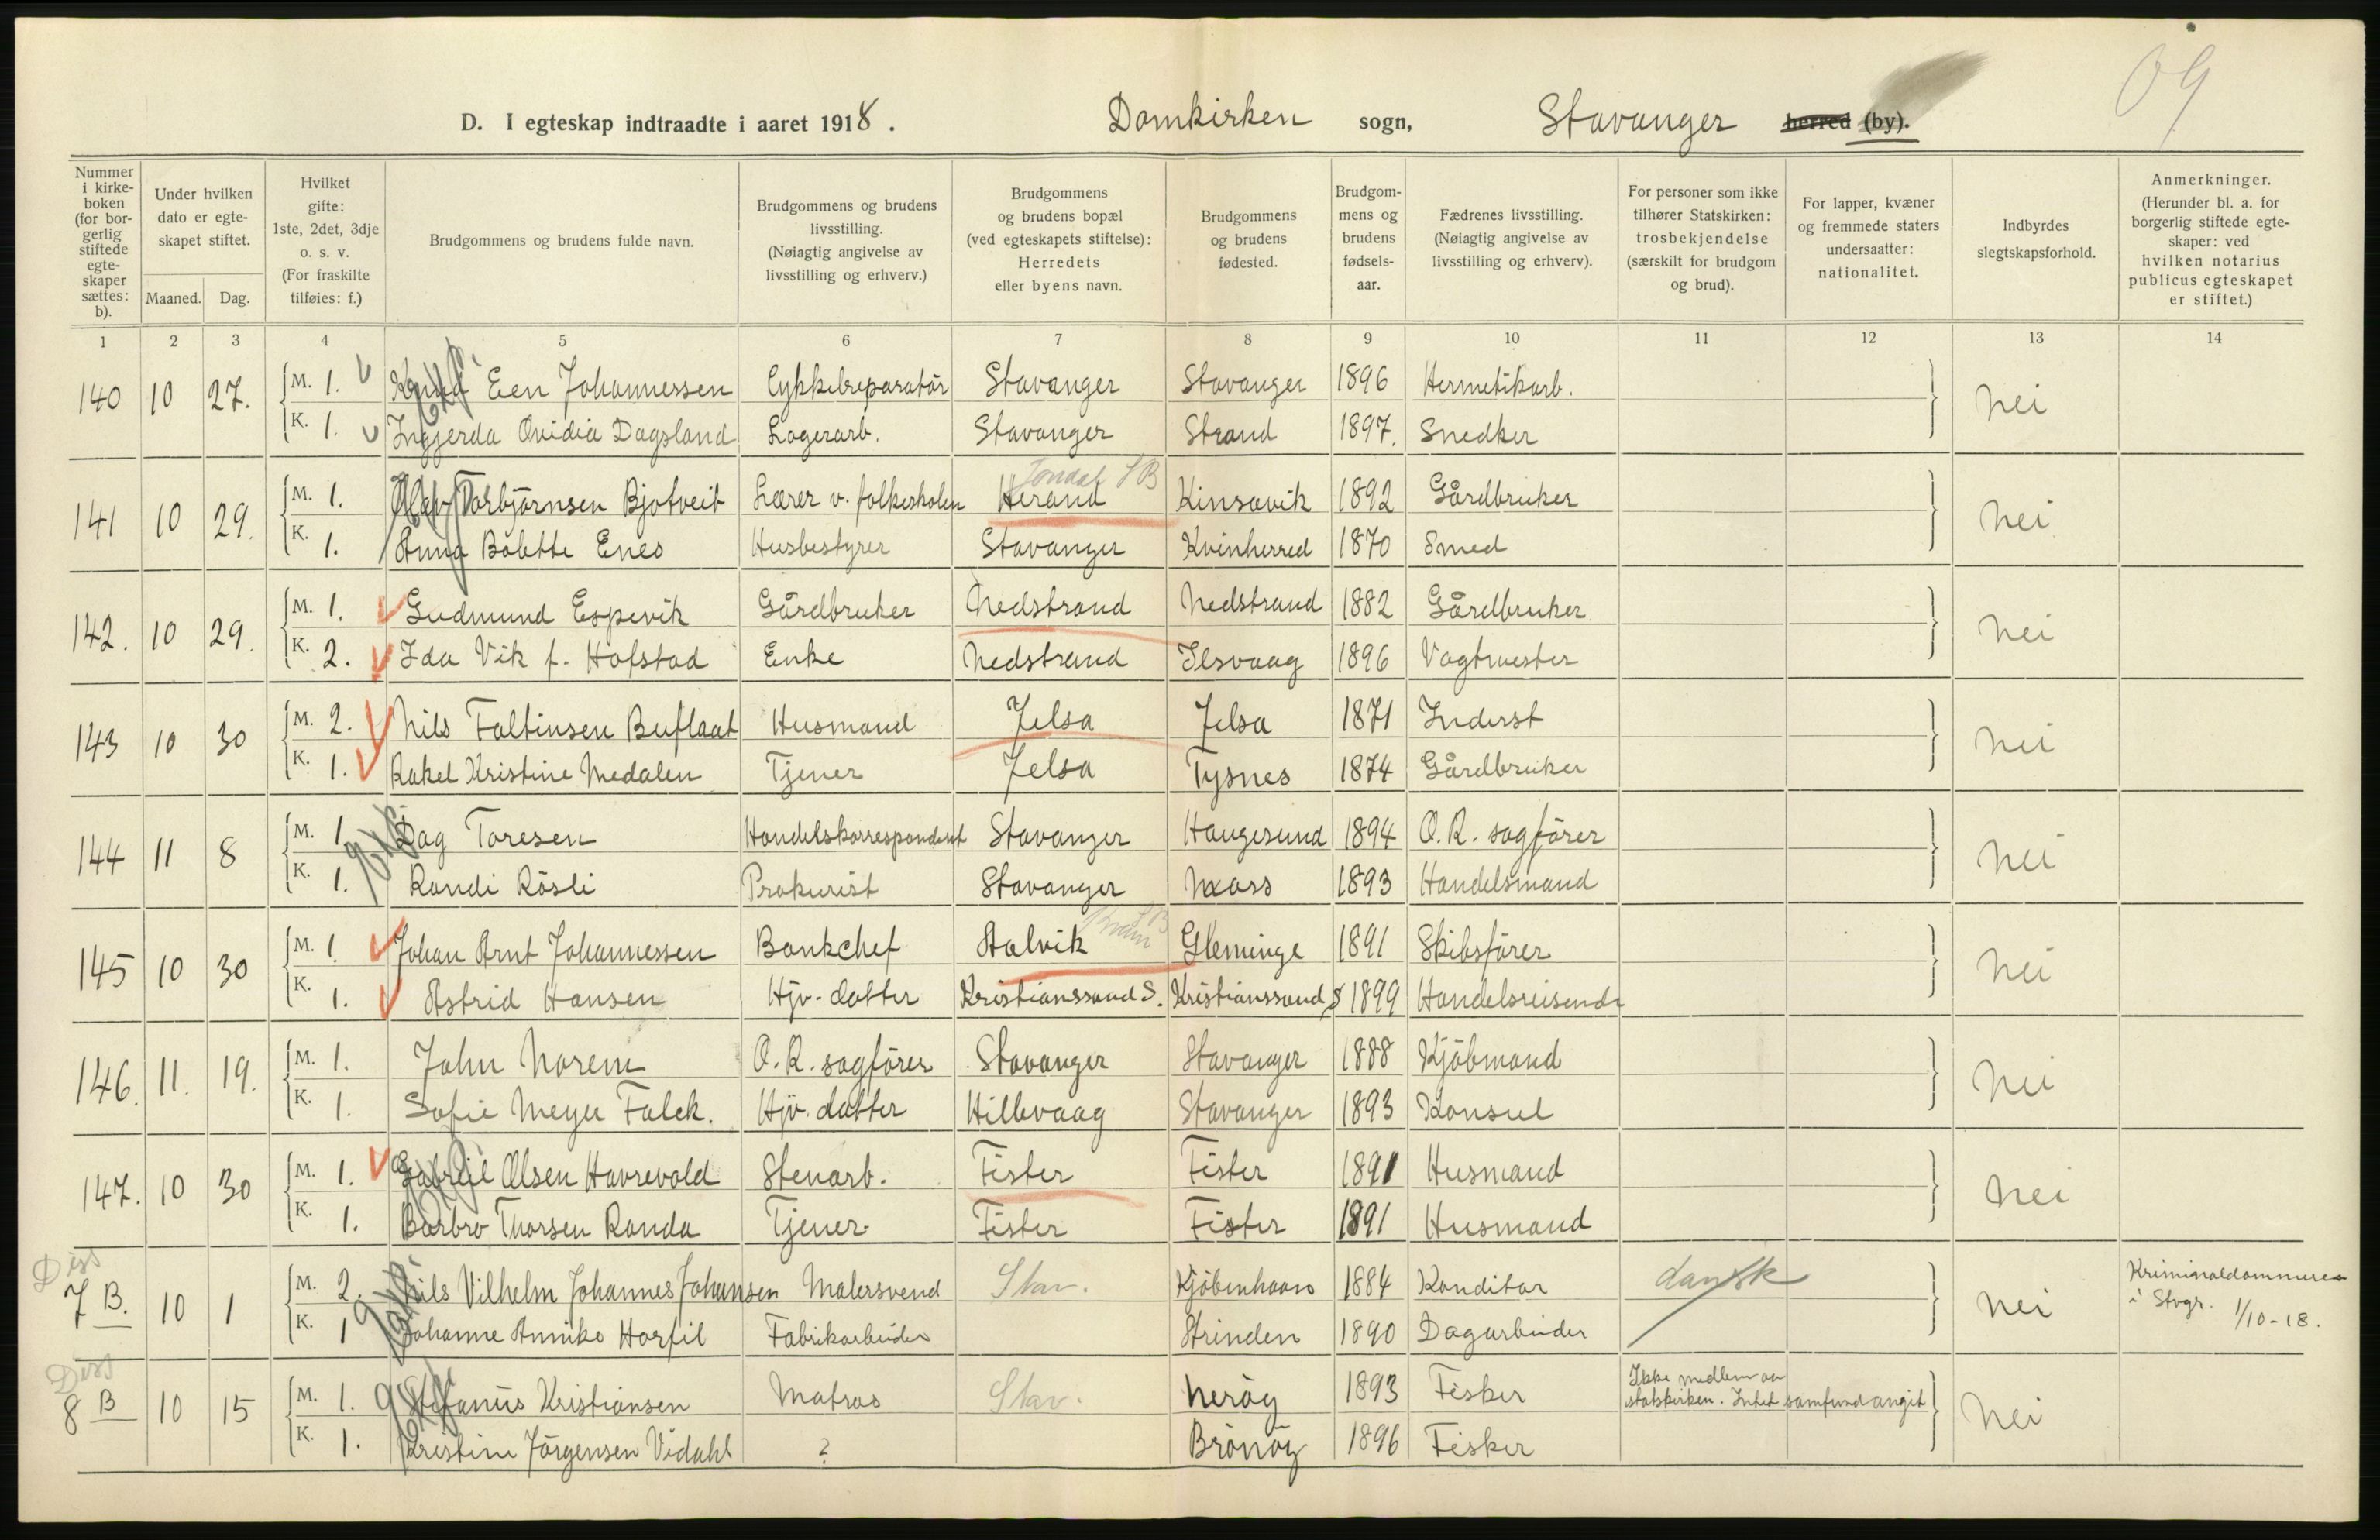 09
D. I egteskap indtraadte i aaret 1918. Domkirken sogn, Stavanger herred (by).
Nummer i kirkeboken (for borgerlig stiftede egteskaper sættes: b).
Under hvilken dato er egteskapet stiftet.
Maaned. Dag.
Hvilket gifte: 1ste, 2det, 3dje o. s. v. (For fraskilte tilføies: f.)
Brudgommens og brudens fulde navn.
Brudgommens og brudens livsstilling. (Nøiagtig angivelse av livsstilling og erhverv.)
Brudgommens og brudens bopæl (ved egteskapets stiftelse): Herredets eller byens navn.
Brudgommens og brudens fødested.
Brudgommens og brudens fødselsaar.
Fædrenes livsstilling. (Nøiagtig angivelse av livsstilling og erhverv).
For personer som ikke tilhører Statskirken: trosbekjendelse (særskilt for brudgom og brud).
For lapper, kvæner og fremmede staters undersaatter: nationalitet.
Indbyrdes slegtskapsforhold.
Anmerkninger. (Herunder bl. a. for borgerlig stiftede egteskaper: ved hvilken notarius publicus egteskapet er stiftet.)
1 2 3 4 5 6 7 8 9 10 11 12 13 14
140 10 27. M. 1. Een Johannessen Cykkelreparatör Stavanger Stavanger 1896 Hermetikarb. Nei
K. 1. Ingjerda Ovidia Dagsland Lagerarb. Stavanger Strand 1897. Snedker
Jondal S B
141 10 29. M. 1. Olav Torbjörnsen Bjotveit Lærer v. folkeskolen Herand Kinsavik 1892 Gårdbruker Nei
K. 1. Anna Bolette Enes Husbestyrer Stavanger Kvinherred 1870 Smed
142. 10 29. M. 1. Gudmund Espevik Gårdbruker Nedstrand Nedstrand 1882 Gårdbruker Nei
K. 2. Ida Vik f. Hofstad Enke Nedstrand Ilsvaag 1896 Vagtmester
143 10 30 M. 2. Nils Faltinsen Buflaat Husmand Jelsa Jelsa 1871 Inderst Nei
K. 1. Rakel Kristine Medalen Tjener Jelsa Tysnes 1874 Gårdbruker
144 11 8 M. 1. Dag Toresen Handelskorrespondent Stavanger Haugesund 1894 O. R. sagförer Nei
K. 1. Randi Rösli Prokurist Stavanger 1893 Handelsmand
145 10 30 M. 1. Johan Arnt Johannessen Bankchef Aalvik Gleminge 1891 Skibsförer Nei
K. 1. Astrid Hansen Hjv. datter Kristianssand S. Kristianssand S 1899 Handelsreisende
146. 11. 19. M. 1. John Norem O. R. sagförer Stavanger Stavanger 1888 Kjöbmand Nei
K. 1. Sofie Meyer Falck. Hjv. datter Hillevaag Stavanger 1893 Konsul
147. 10 30 M. 1. Gabriel Olsen Havrevold Stenarb. Fister Fister 1891 Husmand Nei
K. 1. Barbro Thorsen Randa Tjener Fister Fister 1891 Husmand
Diss
7 B. 10 1 M. 2. Nils Vilhelm Johannes Johansen Malersvend Stav. Kjöbenhavn 1884 Konditor dansk Nei Kriminaldommeren
i Stvgr. 1/10-18.
K. 1 Johanne Annike Horfil Fabrikarbeider Strinden 1890 Dagarbeider
Diss
8 B 10 15 M. 1. Stefanus Kristiansen Matros Stav. Nerög 1893 Fisker Ikke medlem av
statskirken. Intet samfund angit Nei
K. 1. Kristine Jörgensen Vidahl ? Brönöy 1896 Fisker